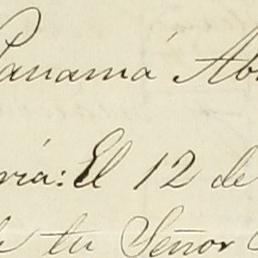 Panamá Ab
ria: El 12 de
de tu Señor